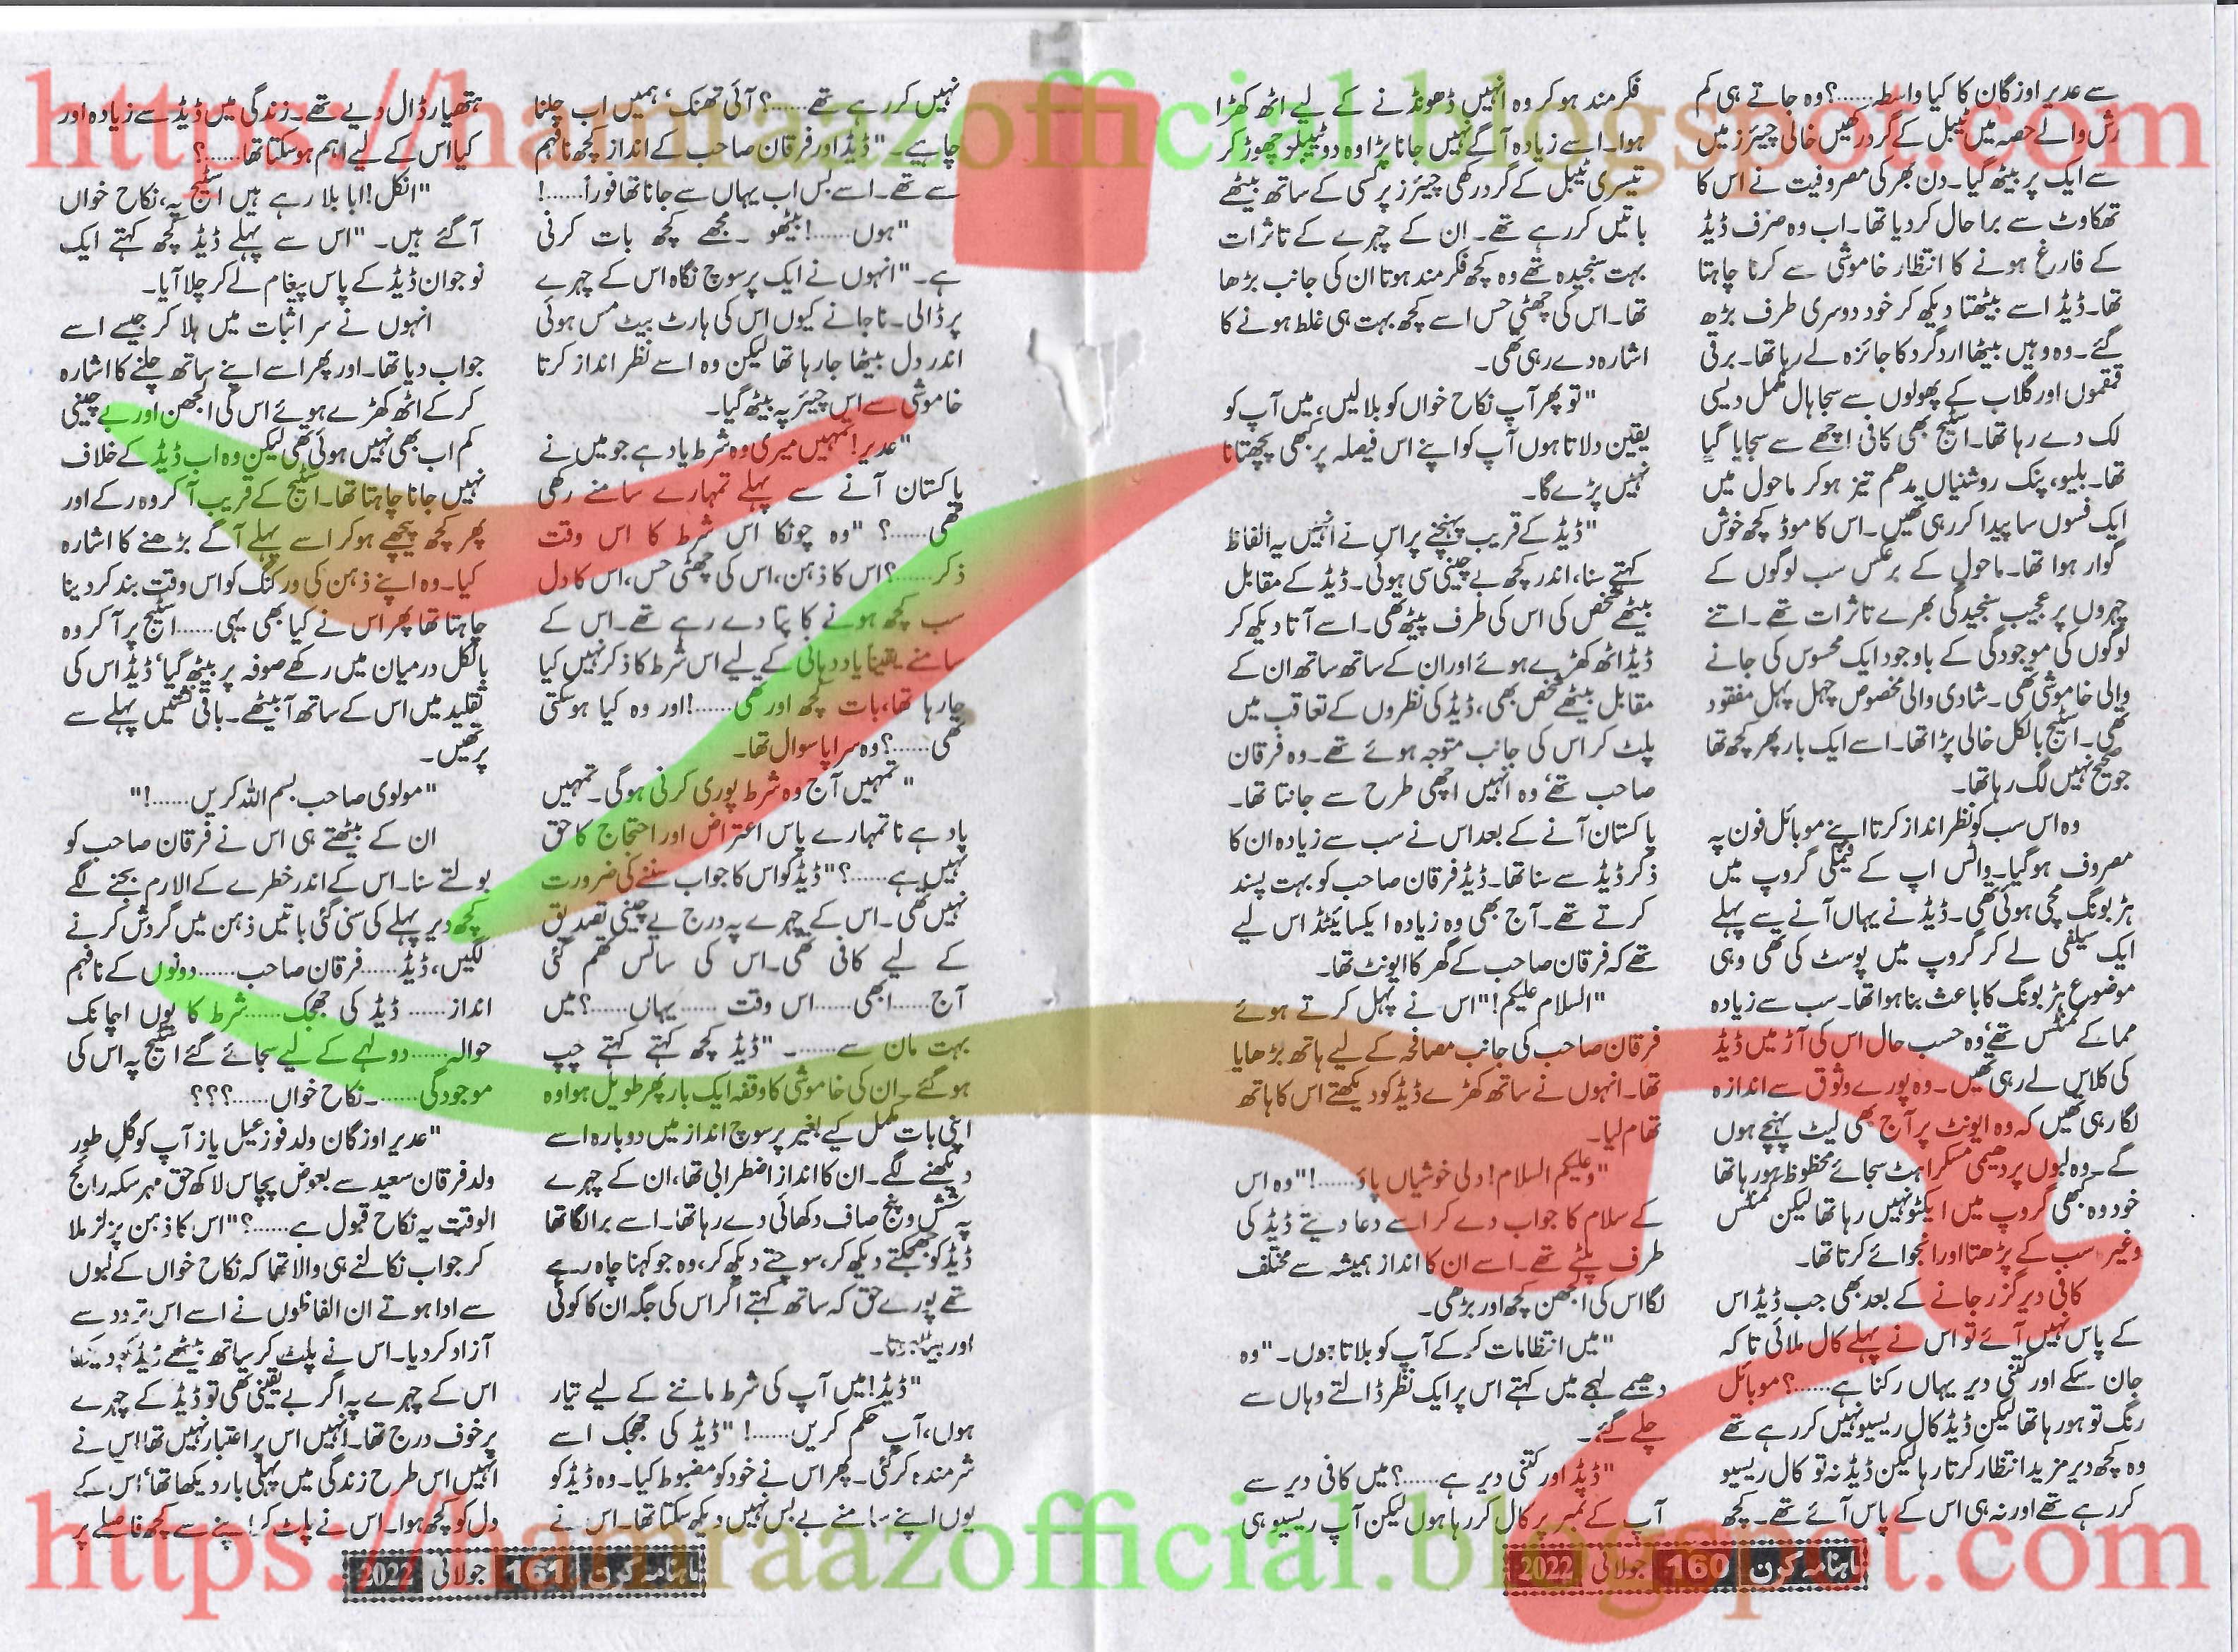 https://hamraazofficial.blogspot.com
سے عدیر اوزگان کا کیا واسطہ......؟ وہ جاتے ہی کم
رش والے حصہ میں ٹیبل کے گرد رکھیں خالی چیئرز میں
سے ایک پر بیٹھ گیا۔ دن بھر کی مصروفیت نے اس کا
تھکاوٹ سے برا حال کر دیا تھا۔ اب وہ صرف ڈیڈ
کے فارغ ہونے کا انتظار خاموشی سے کرنا چاہتا
تھا۔ ڈیڈ اسے بیٹھتا دیکھ کر خود دوسری طرف بڑھ
گئے۔ وہ وہیں بیٹھا ارد گرد کا جائزہ لے رہا تھا۔ برقی
قمقموں اور گلاب کے پھولوں سے سجا ہال مکمل دیسی
لک دے رہا تھا۔ اسٹیج بھی کافی اچھے سے سجایا گیا
تھا۔ بلیو، پنک روشنیاں مدھم تیز ہو کر ماحول میں
ایک فسوں سا پیدا کر رہی تھیں۔ اس کا موڈ کچھ خوش
گوار ہوا تھا۔ ماحول کے برعکس سب لوگوں کے
چہروں پر عجیب سنجیدگی بھرے تاثرات تھے۔ اتنے
لوگوں کی موجودگی کے باوجود ایک محسوس کی جانے
والی خاموشی تھی۔ شادی والی مخصوص چہل پہل مفقود
تھی۔ اسٹیج بالکل خالی پڑا تھا۔ اسے ایک بار پھر کچھ تھا
جو صحیح نہیں لگ رہا تھا۔
وہ اس سب کو نظر انداز کرتا اپنے موبائل فون پہ
مصروف ہو گیا۔ واٹس اپ کے فیملی گروپ میں
ہڑبونگ مچی ہوئی تھی۔ ڈیڈ نے یہاں آنے سے پہلے
ایک سیلفی لے کر گروپ میں پوسٹ کی تھی وہی
موضوع ہڑبونگ کا باعث بنا ہوا تھا۔ سب سے زیادہ
مما کے کمنٹس تھے، وہ حسب حال اس کی آڑ میں ڈیڈ
کی کلاس لے رہی تھیں۔ وہ پورے وثوق سے اندازہ
لگا رہی تھیں کہ وہ ایونٹ پر آج بھی لیٹ پہنچے ہوں
گے۔ وہ لبوں پر دھیمی مسکراہٹ سجائے محظوظ ہو رہا تھا
خود وہ بھی گروپ میں ایکٹو نہیں رہا تھا لیکن کمنٹس
وغیرہ سب کے پڑھتا اور انجوائے کرتا تھا۔
کافی دیر گزر جانے کے بعد بھی جب ڈیڈ اس
کے پاس نہیں آئے تو اس نے پہلے کال ملائی تا کہ
جان سکے اور کتنی دیر یہاں رکنا ہے......؟ موبائل
رنگ تو ہو رہا تھا لیکن ڈیڈ کال ریسیو نہیں کر رہے تھے
وہ کچھ دیر مزید انتظار کرتا رہا لیکن ڈیڈ نہ تو کال ریسیو
کر رہے تھے اور نہ ہی اس کے پاس آئے تھے۔ کچھ
فکر مند ہو کر وہ انہیں ڈھونڈنے کے لیے اٹھ کھڑا
ہوا۔ اسے زیادہ آگے نہیں جانا پڑا وہ دو ٹیبلو چھوڑ کر
تیسری ٹیبل کے گرد رکھی چیئرز پر کسی کے ساتھ بیٹھے
باتیں کر رہے تھے۔ ان کے چہرے کے تاثرات
بہت سنجیدہ تھے وہ کچھ فکر مند ہوتا ان کی جانب بڑھا
تھا۔ اس کی چھٹی حس اسے کچھ بہت ہی غلط ہونے کا
اشارہ دے رہی تھی۔
"تو پھر آپ نکاح خواں کو بلا لیں، میں آپ کو
یقین دلاتا ہوں آپ کو اپنے اس فیصلہ پر کبھی پچھتانا
نہیں پڑے گا۔
"ڈیڈ کے قریب پہنچنے پر اس نے انہیں یہ الفاظ
کہتے سنا، اندر کچھ بے چینی سی ہوئی۔ ڈیڈ کے مقابل
بیٹھے شخص کی اس کی طرف پیٹھ تھی۔ اسے آتا دیکھ کر
ڈیڈ اٹھ کھڑے ہوئے اور ان کے ساتھ ساتھ ان کے
مقابل بیٹھے شخص بھی، ڈیڈ کی نظروں کے تعاقب میں
پلٹ کر اس کی جانب متوجہ ہوئے تھے۔ وہ فرقان
صاحب تھے، وہ انہیں اچھی طرح سے جانتا تھا۔
پاکستان آنے کے بعد اس نے سب سے زیادہ ان کا
ذکر ڈیڈ سے سنا تھا۔ ڈیڈ فرقان صاحب کو بہت پسند
کرتے تھے۔ آج بھی وہ زیادہ ایکسائیٹڈ اس لیے
تھے کہ فرقان صاحب کے گھر کا ایونٹ تھا۔
"السلام علیکم!" اس نے پہل کرتے ہوئے
فرقان صاحب کی جانب مصافحہ کے لیے ہاتھ بڑھایا
تھا۔ انہوں نے ساتھ کھڑے ڈیڈ کو دیکھتے اس کا ہاتھ
تھام لیا۔
"وعلیکم السلام! دلی خوشیاں پاؤ......!" وہ اس
کے سلام کا جواب دے کر اسے دعا دیتے ڈیڈ کی
طرف پلٹے تھے۔ اسے ان کا انداز ہمیشہ سے مختلف
لگا اس کی الجھن کچھ اور بڑھی۔
"میں انتظامات کر کے آپ کو بلاتا ہوں۔" وہ
دھیمے لہجے میں کہتے اس پر ایک نظر ڈالتے وہاں سے
چلے گئے۔
"ڈیڈ اور کتنی دیر ہے......؟ میں کافی دیر سے
آپ کے نمبر پر کال کر رہا ہوں لیکن آپ ریسیو ہی
ماہنامہ کرن 160 جولائی 2022
نہیں کر رہے تھے......؟ آئی تھنک، ہمیں اب چلنا
چاہیے۔" ڈیڈ اور فرقان صاحب کے انداز کچھ نافہم
سے تھے۔ اسے بس اب یہاں سے جانا تھا فوراً......!
"ہوں......! بیٹھو۔ مجھے کچھ بات کرنی
ہے۔" انہوں نے ایک پرسوچ نگاہ اس کے چہرے
پر ڈالی۔ نا جانے کیوں اس کی ہارٹ بیٹ مس ہوئی
اندر دل بیٹھا جا رہا تھا لیکن وہ اسے نظر انداز کرتا
خاموشی سے اس چیئر پہ بیٹھ گیا۔
"عدیر! تمہیں میری وہ شرط یاد ہے جو میں نے
پاکستان آنے سے پہلے تمہارے سامنے رکھی
تھی......؟" وہ چونکا اس شرط کا اس وقت
ذکر......؟ اس کا ذہن، اس کی چھٹی حس، اس کا دل
سب کچھ ہونے کا پتا دے رہے تھے۔ اس کے
سامنے یقیناً یاد دہانی کے لیے اس شرط کا ذکر نہیں کیا
جا رہا تھا، بات کچھ اور تھی......! اور وہ کیا ہو سکتی
تھی......؟ وہ سراپا سوال تھا۔
"تمہیں آج وہ شرط پوری کرنی ہوگی۔ تمہیں
یاد ہے نا تمہارے پاس اعتراض اور احتجاج کا حق
نہیں ہے......؟" ڈیڈ کو اس کا جواب سننے کی ضرورت
نہیں تھی۔ اس کے چہرے پہ درج بے چینی تصدیق
کے لیے کافی تھی۔ اس کی سانس تھم گئی
آج......ابھی......اس وقت......یہاں......؟ میں
بہت مان سے......۔" ڈیڈ کچھ کہتے کہتے چپ
ہو گئے۔ ان کی خاموشی کا وقفہ ایک بار پھر طویل ہوا وہ
اپنی بات مکمل کیے بغیر پرسوچ انداز میں دوبارہ اسے
دیکھنے لگے۔ ان کا انداز اضطرابی تھا، ان کے چہرے
پہ شش و پنج صاف دکھائی دے رہا تھا۔ اسے برا لگا تھا
ڈیڈ کو جھجکتے دیکھ کر، سوچتے دیکھ کر، وہ جو کہنا چاہ رہے
تھے پورے حق کہ ساتھ کہتے اگر اس کی جگہ ان کا کوئی
اور بیٹا ہوتا۔
"ڈیڈ! میں آپ کی شرط ماننے کے لیے تیار
ہوں، آپ حکم کریں......!" ڈیڈ کی جھجک اسے
شرمندہ کر گئی۔ پھر اس نے خود کو مضبوط کیا۔ وہ ڈیڈ کو
یوں اپنے سامنے بے بس نہیں دیکھ سکتا تھا۔ اس نے
ہتھیار ڈال دیے تھے۔ زندگی میں ڈیڈ سے زیادہ اور
کیا اس کے لیے اہم ہو سکتا تھا......؟
"انکل! ابا بلا رہے ہیں اسٹیج پہ، نکاح خواں
آگئے ہیں۔" اس سے پہلے ڈیڈ کچھ کہتے ایک
نوجوان ڈیڈ کے پاس پیغام لے کر چلا آیا۔
انہوں نے سر اثبات میں ہلا کر جیسے اسے
جواب دیا تھا۔ اور پھر اسے اپنے ساتھ چلنے کا اشارہ
کر کے اٹھ کھڑے ہوئے اس کی الجھن اور بے چینی
کم اب بھی نہیں ہوئی تھی لیکن وہ اب ڈیڈ کے خلاف
نہیں جانا چاہتا تھا۔ اسٹیج کے قریب آ کر وہ رکے اور
پھر کچھ پیچھے ہو کر اسے پہلے آگے بڑھنے کا اشارہ
کیا۔ وہ اپنے ذہن کی ورکنگ کو اس وقت بند کر دینا
چاہتا تھا پھر اس نے کیا بھی یہی......اسٹیج پر آ کر وہ
بالکل درمیان میں رکھے صوفہ پر بیٹھ گیا، ڈیڈ اس کی
تقلید میں اس کے ساتھ آ بیٹھے۔ باقی نشتیں پہلے سے
پر تھیں۔
"مولوی صاحب بسم اللہ کریں......!"
ان کے بیٹھتے ہی اس نے فرقان صاحب کو
بولتے سنا۔ اس کے اندر خطرے کے الارم بجنے لگے
کچھ دیر پہلے کی سنی گئی باتیں ذہن میں گردش کرنے
لگیں، ڈیڈ......فرقان صاحب......دونوں کے نافہم
انداز......ڈیڈ کی جھجک......شرط کا یوں اچانک
حوالہ......دولہے کے لیے سجائے گئے اسٹیج پہ اس کی
موجودگی......۔ نکاح خواں......؟؟؟
"عدیر اوزگان ولد فوزعیل یاز آپ کو گل طور
ولد فرقان سعید سے بعوض پچاس لاکھ حق مہر سکہ رائج
الوقت یہ نکاح قبول ہے......؟" اس کا ذہن پزلز ملا
کر جواب نکالنے ہی والا تھا کہ نکاح خواں کے لبوں
سے ادا ہوتے ان الفاظوں نے اسے اس تردد سے
آزاد کر دیا۔ اس نے پلٹ کر ساتھ بیٹھے ڈیڈ کو دیکھا
اس کے چہرے پہ اگر بے یقینی تھی تو ڈیڈ کے چہرے
پر خوف درج تھا۔ انہیں اس پر اعتبار نہیں تھا اس نے
انہیں اس طرح زندگی میں پہلی بار دیکھا تھا، اس کے
دل کو کچھ ہوا۔ اس نے پلٹ کر اپنے سے کچھ فاصلے پر
ماہنامہ کرن 161 جولائی 2022
https://hamraazofficial.blogspot.com